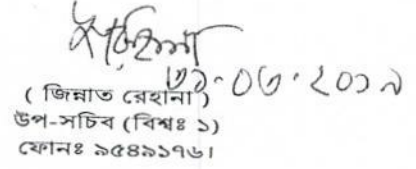 ৩১-০৩-২০১৯
( জিন্নাত রেহানা )
উপ-সচিব (বিশ্বঃ ১)
ফোনঃ ৯৫৪৯১৭৬।